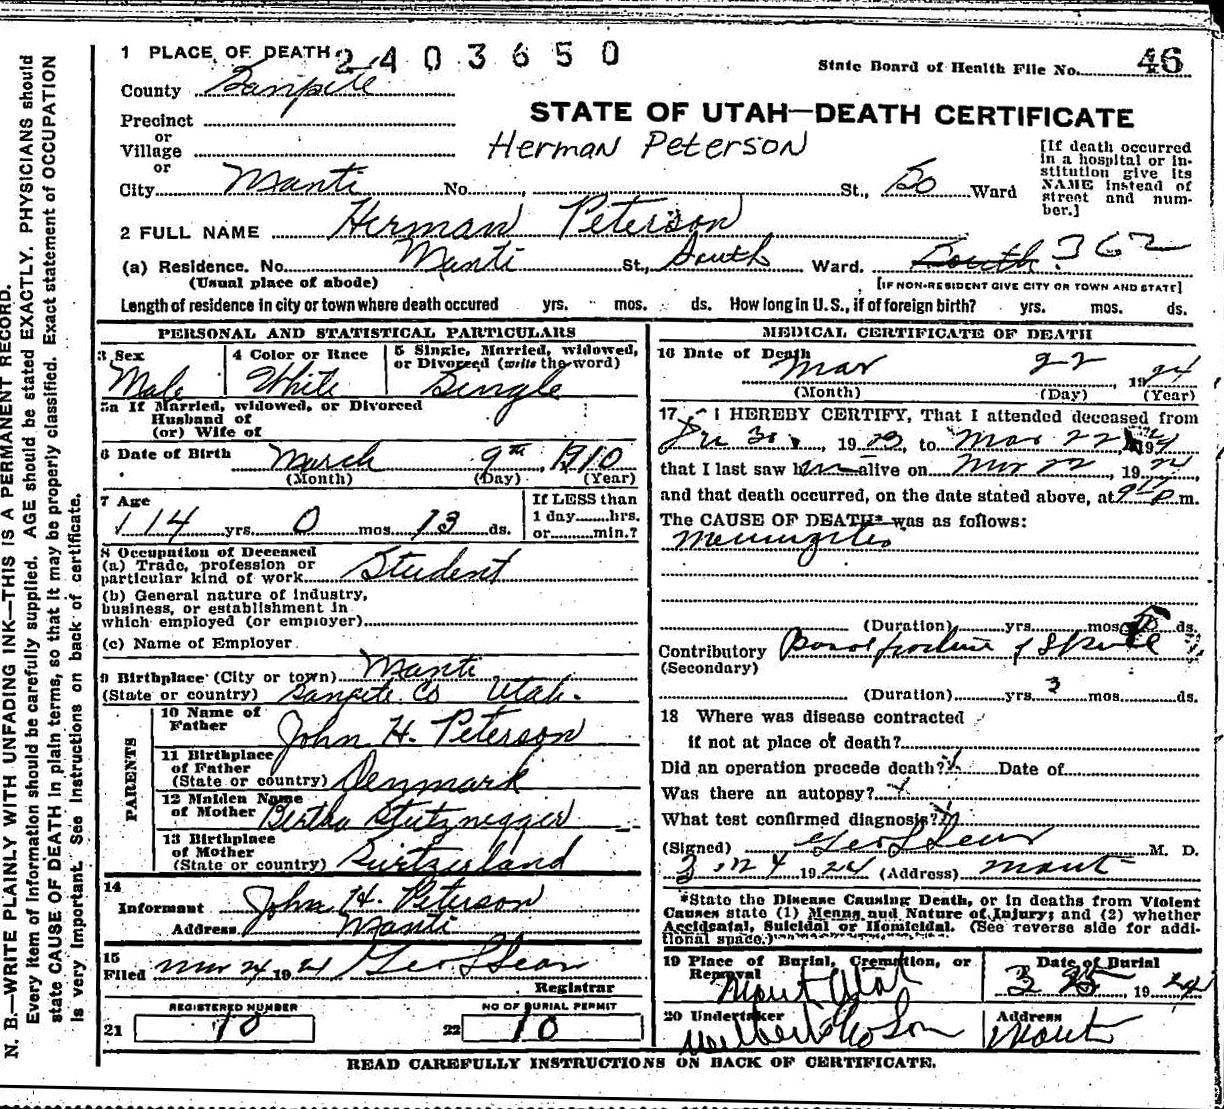 N. B.—WRITE PLAINLY WITH UNFADING INK—THIS IS A PERMANENT RECORD.
Every item of information should be carefully supplied. AGE should be stated EXACTLY. PHYSICIANS should
state CAUSE OF DEATH in plain terms, so that it may be properly classified. Exact statement of OCCUPATION
is very important. See instructions on back of certificate.
1 PLACE OF DEATH
2403650
State Board of Health File No. 46
County Sanpete
STATE OF UTAH—DEATH CERTIFICATE
Precinct
or
Village
or
Herman Peterson
[If death occurred
in a hospital or in-
stitution give its
NAME instead of
street and num-
ber.]
City Manti No. , St., So Ward
2 FULL NAME Herman Peterson
(a) Residence. No. Manti St., South Ward. South. 362
(Usual place of abode)
[IF NON-RESIDENT GIVE CITY OR TOWN AND STATE]
Length of residence in city or town where death occured yrs. mos. ds. How long in U.S., if of foreign birth? yrs. mos. ds.
PERSONAL AND STATISTICAL PARTICULARS
3 Sex
Male
4 Color or Race
White
5 Single, Married, widowed,
or Divorced (write the word)
Single
5a If Married, widowed, or Divorced
Husband of
(or) Wife of
6 Date of Birth March 9th, 1910
(Month) (Day) (Year)
7 Age
14 yrs. 0 mos. 13 ds.
If LESS than
1 day hrs.
or min.?
8 Occupation of Deceased
(a) Trade, profession or
particular kind of work Student
(b) General nature of industry,
business, or establishment in
which employed (or employer)
(c) Name of Employer
9 Birthplace (City or town) Manti
(State or country) Sanpete Co Utah.
PARENTS
10 Name of
Father John H. Peterson
11 Birthplace
of Father
(State or country) Denmark
12 Maiden Name
of Mother Bertha Stutznegger
13 Birthplace
of Mother
(State or country) Switzerland
14
Informant John H. Peterson
Address Manti
15
Filed Mar 24 19
Registrar
REGISTERED NUMBER
21 10
NO OF BURIAL PERMIT
22 10
MEDICAL CERTIFICATE OF DEATH
16 Date of Death
Mar 22, 1924
(Month) (Day) (Year)
17 I HEREBY CERTIFY, That I attended deceased from
19 23, to Mar 22, 1924
that I last saw him alive on Mar 22 1924
and that death occurred, on the date stated above, at 9 p m.
The CAUSE OF DEATH* was as follows:
Meningitis
(Duration) yrs. mos. ds.
Contributory
(Secondary)
(Duration) yrs. 3 mos. ds.
18 Where was disease contracted
if not at place of death?
Did an operation precede death? Date of
Was there an autopsy?
What test confirmed diagnosis?
(Signed) M. D.
1924 (Address) Manti
*State the Disease Causing Death, or in deaths from Violent
Causes state (1) Menns and Nature of Injury; and (2) whether
Accidental, Suicidal or Homicidal. (See reverse side for addi-
tional space.)
19 Place of Burial, Cremation, or
Removal
Manti Utah
Date of Burial
3 25, 1924
20 Undertaker
Address
Manti
READ CAREFULLY INSTRUCTIONS ON BACK OF CERTIFICATE.